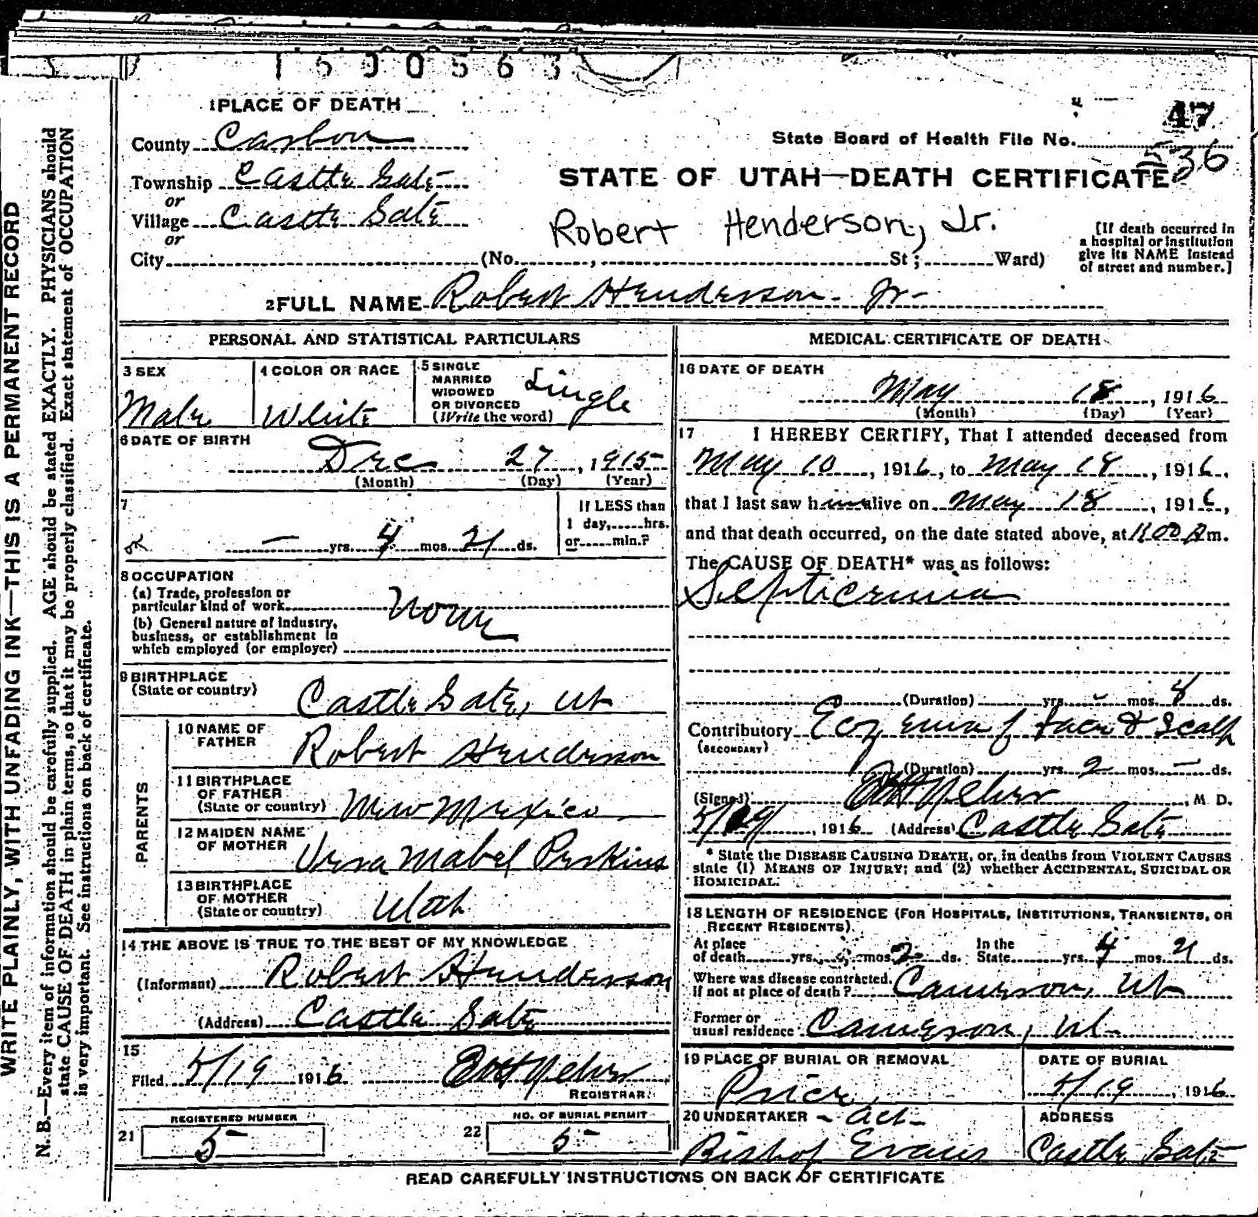 1500563
1 PLACE OF DEATH
County Carbon
State Board of Health File No. 47
536
Township Castle Gate
or
Village Castle Gate
or
City (No. , St; Ward)
STATE OF UTAH—DEATH CERTIFICATE
Robert Henderson, Jr.
[If death occurred in
a hospital or institution
give its NAME instead
of street and number.]
2 FULL NAME Robert Henderson Jr-
PERSONAL AND STATISTICAL PARTICULARS
3 SEX
Male
4 COLOR OR RACE
White
5 SINGLE
MARRIED
WIDOWED
OR DIVORCED
(Write the word)
Single
6 DATE OF BIRTH
Dec 27, 1915
(Month) (Day) (Year)
7
— yrs. 4 mos. 21 ds.
If LESS than
1 day, hrs.
or min.?
8 OCCUPATION
(a) Trade, profession or
particular kind of work
(b) General nature of industry,
business, or establishment in
which employed (or employer)
None
9 BIRTHPLACE
(State or country) Castle Gate, Ut
PARENTS
10 NAME OF
FATHER Robert Henderson
11 BIRTHPLACE
OF FATHER
(State or country) New Mexico
12 MAIDEN NAME
OF MOTHER Mabel Perkins
13 BIRTHPLACE
OF MOTHER
(State or country) Utah
14 THE ABOVE IS TRUE TO THE BEST OF MY KNOWLEDGE
(Informant) Robert Henderson
(Address) Castle Gate
15
Filed 5/19 1916
REGISTRAR
21 REGISTERED NUMBER
5
22 NO. OF BURIAL PERMIT
5
MEDICAL CERTIFICATE OF DEATH
16 DATE OF DEATH
May 18, 1916
(Month) (Day) (Year)
17 I HEREBY CERTIFY, That I attended deceased from
May 10, 1916, to May 18, 1916,
that I last saw h alive on May 18, 1916,
and that death occurred, on the date stated above, at m.
The CAUSE OF DEATH* was as follows:
Septicemia
(Duration) yrs. mos. ds.
Contributory Eczema of face & Scalp
(SECONDARY)
(Duration) yrs. 2 mos. — ds.
(Signed) M D.
1916 (Address) Castle Gate
* State the DISEASE CAUSING DEATH, or, in deaths from VIOLENT CAUSES
state (1) MEANS OF INJURY; and (2) whether ACCIDENTAL, SUICIDAL OR
HOMICIDAL.
18 LENGTH OF RESIDENCE (FOR HOSPITALS, INSTITUTIONS, TRANSIENTS, OR
RECENT RESIDENTS).
At place
of death yrs. mos. 2 ds. In the
State yrs. 4 mos. 21 ds.
Where was disease contracted,
if not at place of death? Cameron, Ut
Former or
usual residence Cameron, Ut.
19 PLACE OF BURIAL OR REMOVAL
Price
DATE OF BURIAL
5/19, 1916
20 UNDERTAKER - act-
Bishop Evans
ADDRESS
Castle Gate
READ CAREFULLY INSTRUCTIONS ON BACK OF CERTIFICATE
WRITE PLAINLY, WITH UNFADING INK—THIS IS A PERMANENT RECORD
N. B.—Every item of information should be carefully supplied. AGE should be stated EXACTLY. PHYSICIANS should
state CAUSE OF DEATH in plain terms, so that it may be properly classified. Exact statement of OCCUPATION
is very important. See instructions on back of certificate.